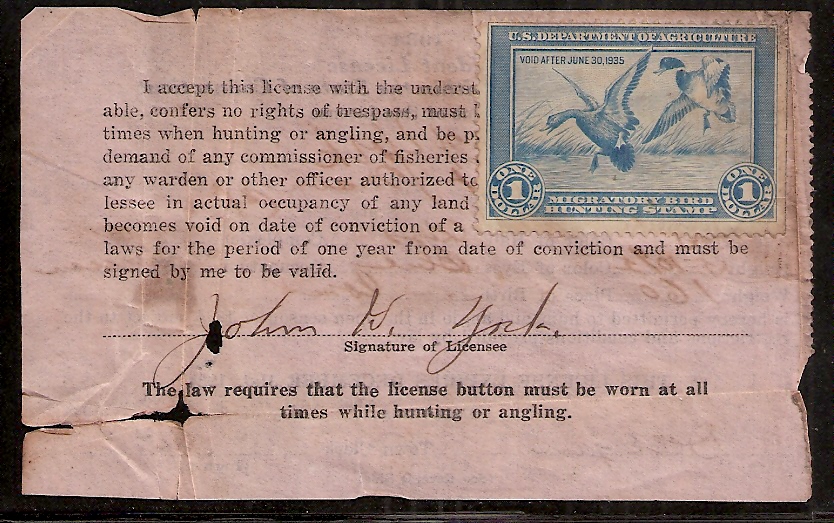 U.S. DEPARTMENT OF AGRICULTURE
VOID AFTER JUNE 30, 1935
ONE DOLLAR
1
ONE DOLLAR
1
MIGRATORY BIRD
HUNTING STAMP
I accept this license with the underst
able, confers no rights of trespass, must
times when hunting or angling, and be p
demand of any commissioner of fisheries
any warden or other officer authorized to
lessee in actual occupancy of any land
becomes void on date of conviction of a
laws for the period of one year from date of conviction and must be
signed by me to be valid.
John W. York.
Signature of Licensee
The law requires that the license button must be worn at all
times while hunting or angling.